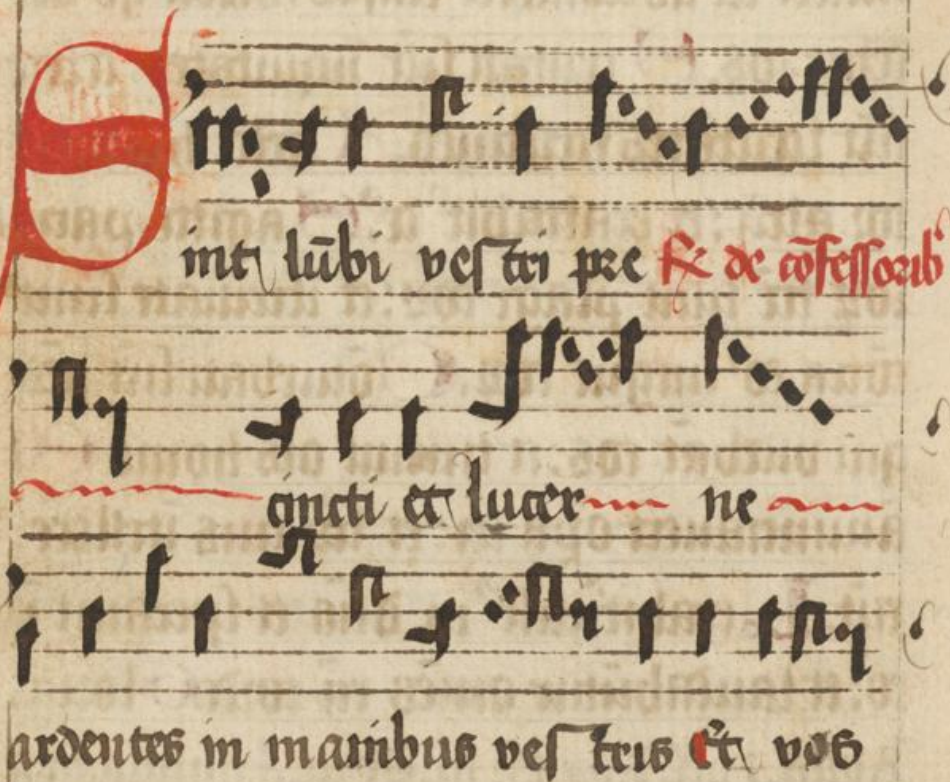 Sint lūbi vestri pre Rx de cōfessorib9
cincti et lucer ne
ardentes in manibus vestris Et vos